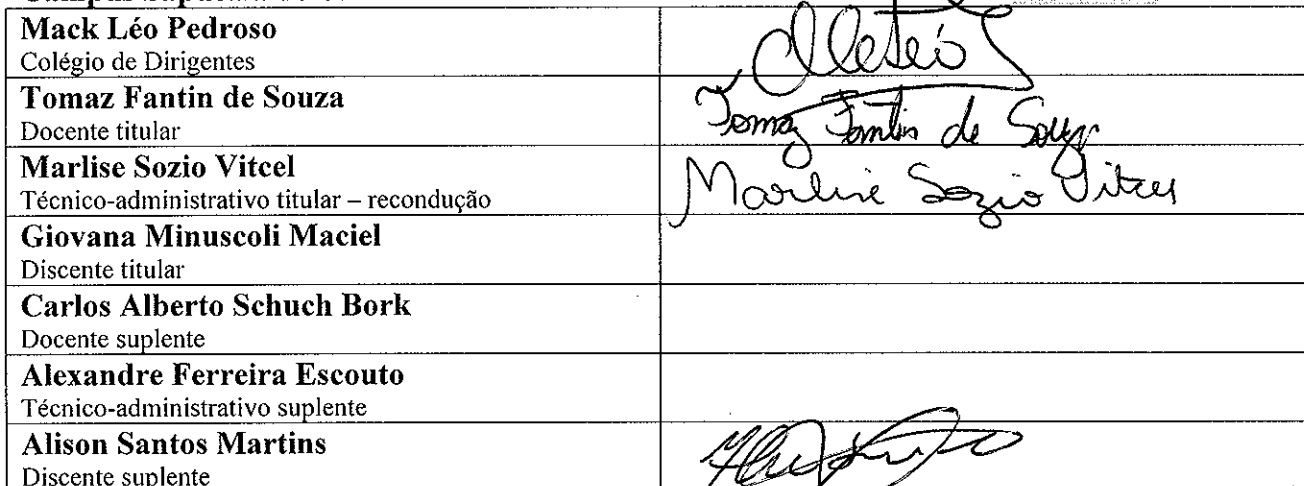 Mack Léo Pedroso
Colégio de Dirigentes
Tomaz Fantin de Souza
Tomaz Fantin de Souza
Docente titular
Marlise Sozio Vitcel
Marlise Sozio Vitcel
Técnico-administrativo titular – recondução
Giovana Minuscoli Maciel
Discente titular
Carlos Alberto Schuch Bork
Docente suplente
Alexandre Ferreira Escouto
Técnico-administrativo suplente
Alison Santos Martins
Discente suplente